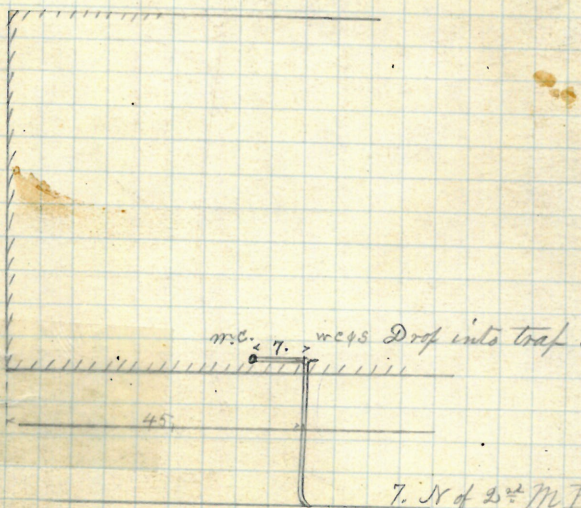 w.c. 7. wc&s Drop into trap
45.
7. N of 2nd M